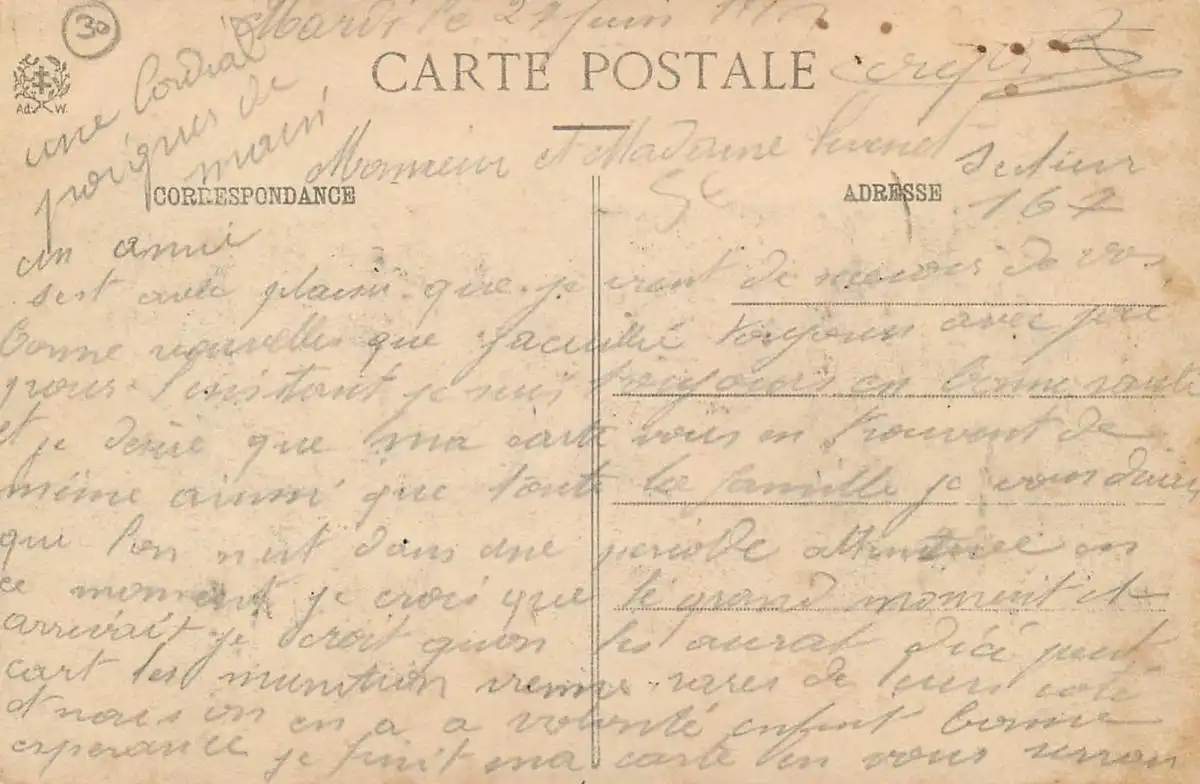 30
Mardi le 27 Juin
CARTE POSTALE
Ad. W.
une Cordial
poignés de
main
un ami
Monsieur et Madame
Secteur
167
CORRESPONDANCE
ADRESSE
sest avec plaisir que je vient de recevoir de vos
bonne nouvelles que jacueille toujours avec
pour l'instant je suis toujours en bonne santé
et je desire que ma carte vous en trouvent de
même ainsi que toute la famille je vous dirai
que l'on n'est dans une periode en
ce moment je crois que le grand moment et
arrivait je croit qu'on les aurat d'ici peut
cart les munition vienne rares de leurs coté
et nous on en a a volonté enfent bonne
esperance je finit ma carte en vous serron